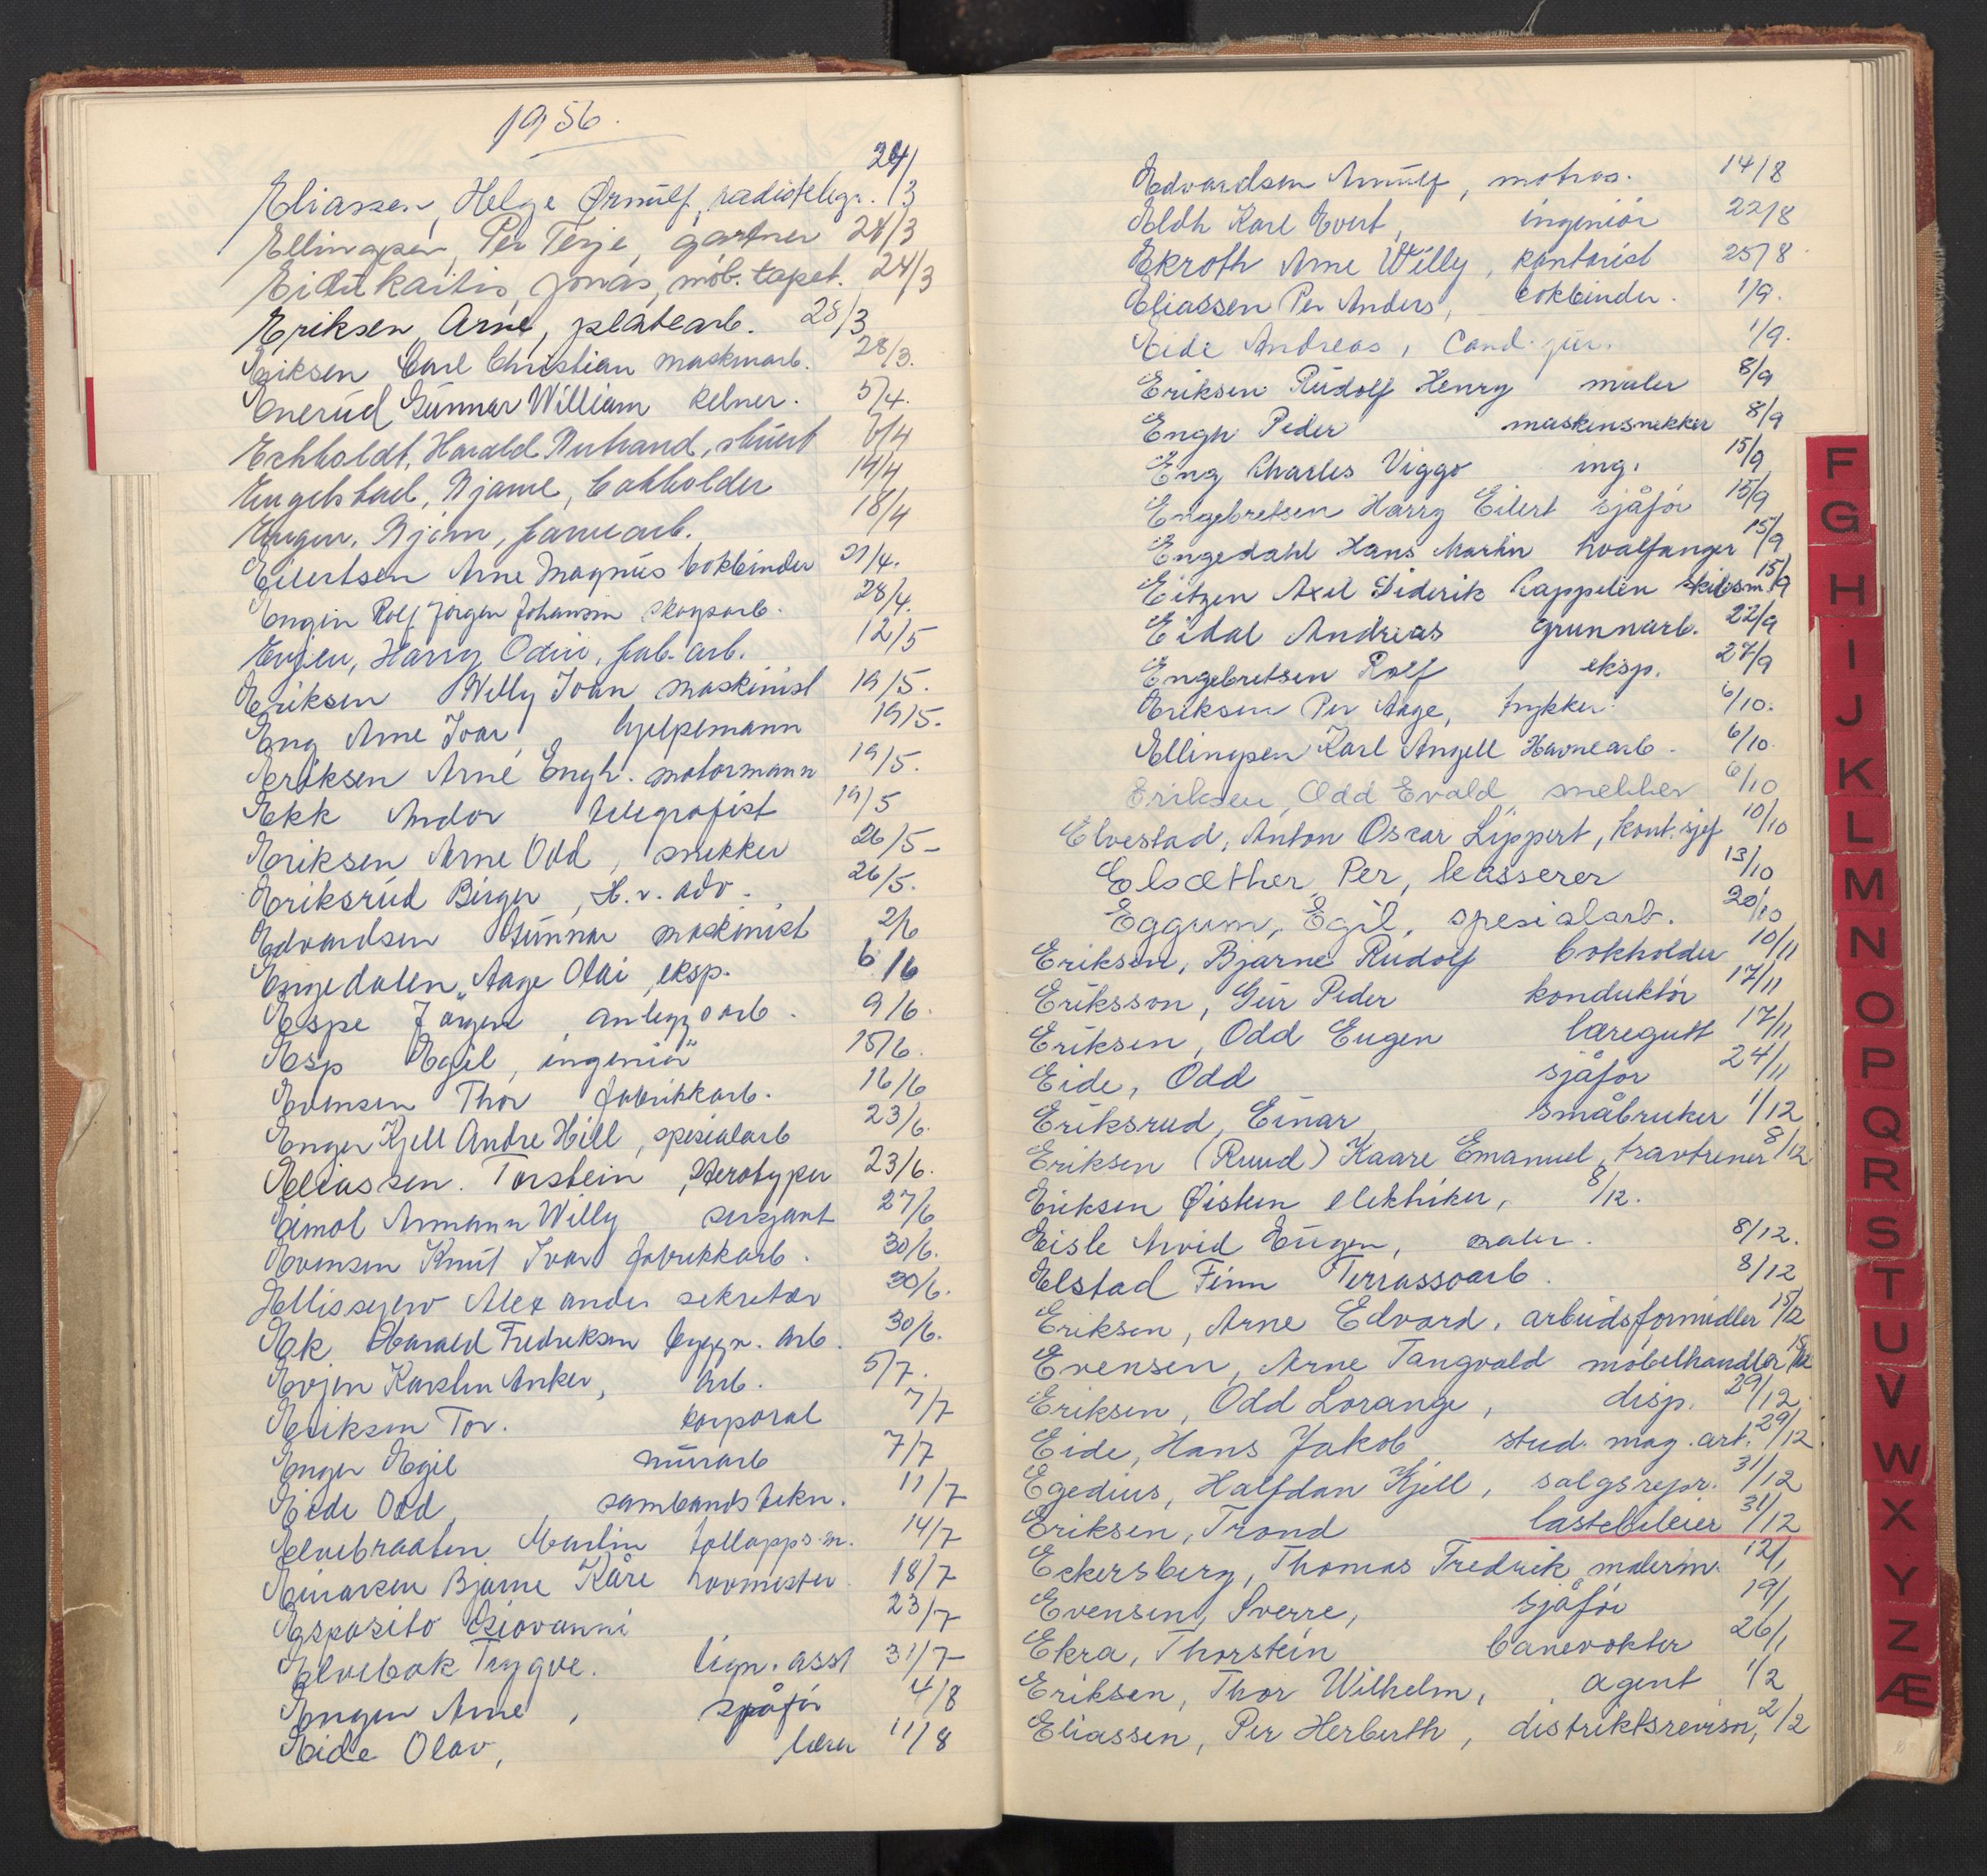 1956.
Eliassen, Helge Ørnulf, radiotelegr. 24/3
Ellingsen, Per Terje, gartner 28/3
Eidukaitis, Jonas, møb. tapet. 24/3
Eriksen, Arne, platearb. 28/3
Eriksen Carl Christian maskinarb. 28/3.
Enerud Gunnar William kelner. 5/4.
Echholdt, Harald Bertrand, stuert 6/4
Engelstad, Bjarne, bokholder 14/4
Engen, Bjørn, 18/4
Eilertsen Arne Magnus bokbinder 21/4.
Engen Rolf Jørgen Johansen skogsarb. 28/4.
Evjen, Harry Odin, fab. arb. 12/5
Eriksen Willy Ivan maskinist 19/5.
Eng Arne Ivar, hjelpemann 19/5.
Eriksen Arne Engh. motormann 19/5.
Ekk Andor telegrafist 19/5
Eriksen Arne Odd, snekker 26/5-
Eriksrud Birger, H.r. adv. 26/5.
Edvardsen Gunnar maskinist 2/6
Engedalen, Aage Olai, eksp. 6/6
Espe Jørgen, anleggsarb. 9/6.
Esp Egil, ingeniør 15/6.
Evensen Thor fabrikkarb. 16/6
Enger Kjell Andre Hill, spesialarb 23/6.
Eliassen. Torstein, Sterotyper 23/6.
Eimol Armann Willy sersjant 27/6
Evensen Knut Ivar fabrikkarb. 30/6.
Ellissejew Alexander sekretær 30/6.
Ek Harald Fredriksen bygn. arb. 30/6.
Evjen Karsten Anker, arb. 5/7.
Eriksen Tor. korporal 7/7
Enger Egil murarb 7/7
Eide Odd, sambandstekn. 11/7
Elvebraaten Martin tollopps.m. 14/7
Einarsen Bjarne Kåre hovmester 18/7
Esposito Giovanni 23/7
Elvebak Trygve. lign. asst 31/7
Engen Arne, sjåfør 4/8
Eide Olav, lærer 11/8
Edvardsen Arnulf, matros. 14/8
Eldh Karl Evert, ingeniør 22/8
Ekroth Arne Willy, kontorist 25/8
Eliassen Per Anders, bokbinder. 1/9.
Eide Andreas, Cand. jur. 1/9.
Eriksen Rudolf Henry maler 8/9
Engh Peder maskinsnekker 8/9
Eng Charles Viggo ing. 15/9
Engebretsen Harry Eilert sjåfør 15/9
Engedahl Hans Martin hvalfanger 15/9
Eitzen Axel Diderik Cappelen skibsm. 15/9
Eidal Andreas grunnarb. 22/9
Engebretsen Rolf eksp. 27/9
Eriksen Per Aage, trykker 6/10.
Ellingsen Karl Angell Havnearb. 6/10.
Eriksen, Odd Evald snekker 6/10
Elvestad, Anton Oscar Lippert, kont. sjef 10/10
Elsæther, Per, kasserer 13/10
Eggum, Egil, spesialarb. 20/10
Eriksen, Bjarne Rudolf bokholder 10/11
Eriksson, Geir Peder konduktør 17/11
Eriksen, Odd Eugen læregutt 17/11
Eide, Odd sjåfør 24/11
Eriksrud, Einar småbruker 1/12
Eriksen (Ruud) Kaare Emanuel, travtrener 8/12
Eriksen Øistein elektriker, 8/12.
Eisle Arvid Eugen, maler. 8/12.
Elstad Finn Terrassoarb. 8/12
Eriksen, Arne Edvard, arbeidsformidler 15/12
Evensen, Arne Tangvald møbelhandler
Eriksen, Odd Lorange, disp. 29/12
Eide, Hans Jakob stud. mag. art. 29/12.
Egedius, Halfdan Kjell, salgsrepr. 31/12
Eriksen, Trond lastebileier 31/12
Eckersberg, Thomas Fredrik malerm. 12/1
Evensen, Sverre, sjåfør 19/1
Ekra, Thorstein banevokter 26/1
Eriksen, Thor Wilhelm, agent 1/2
Eliassen, Per Herberth, distriktsrevisor, 2/2
F
G
H
I
J
K
L
M
N
O
P
Q
R
S
T
U
V
W
X
Y
Z
Æ